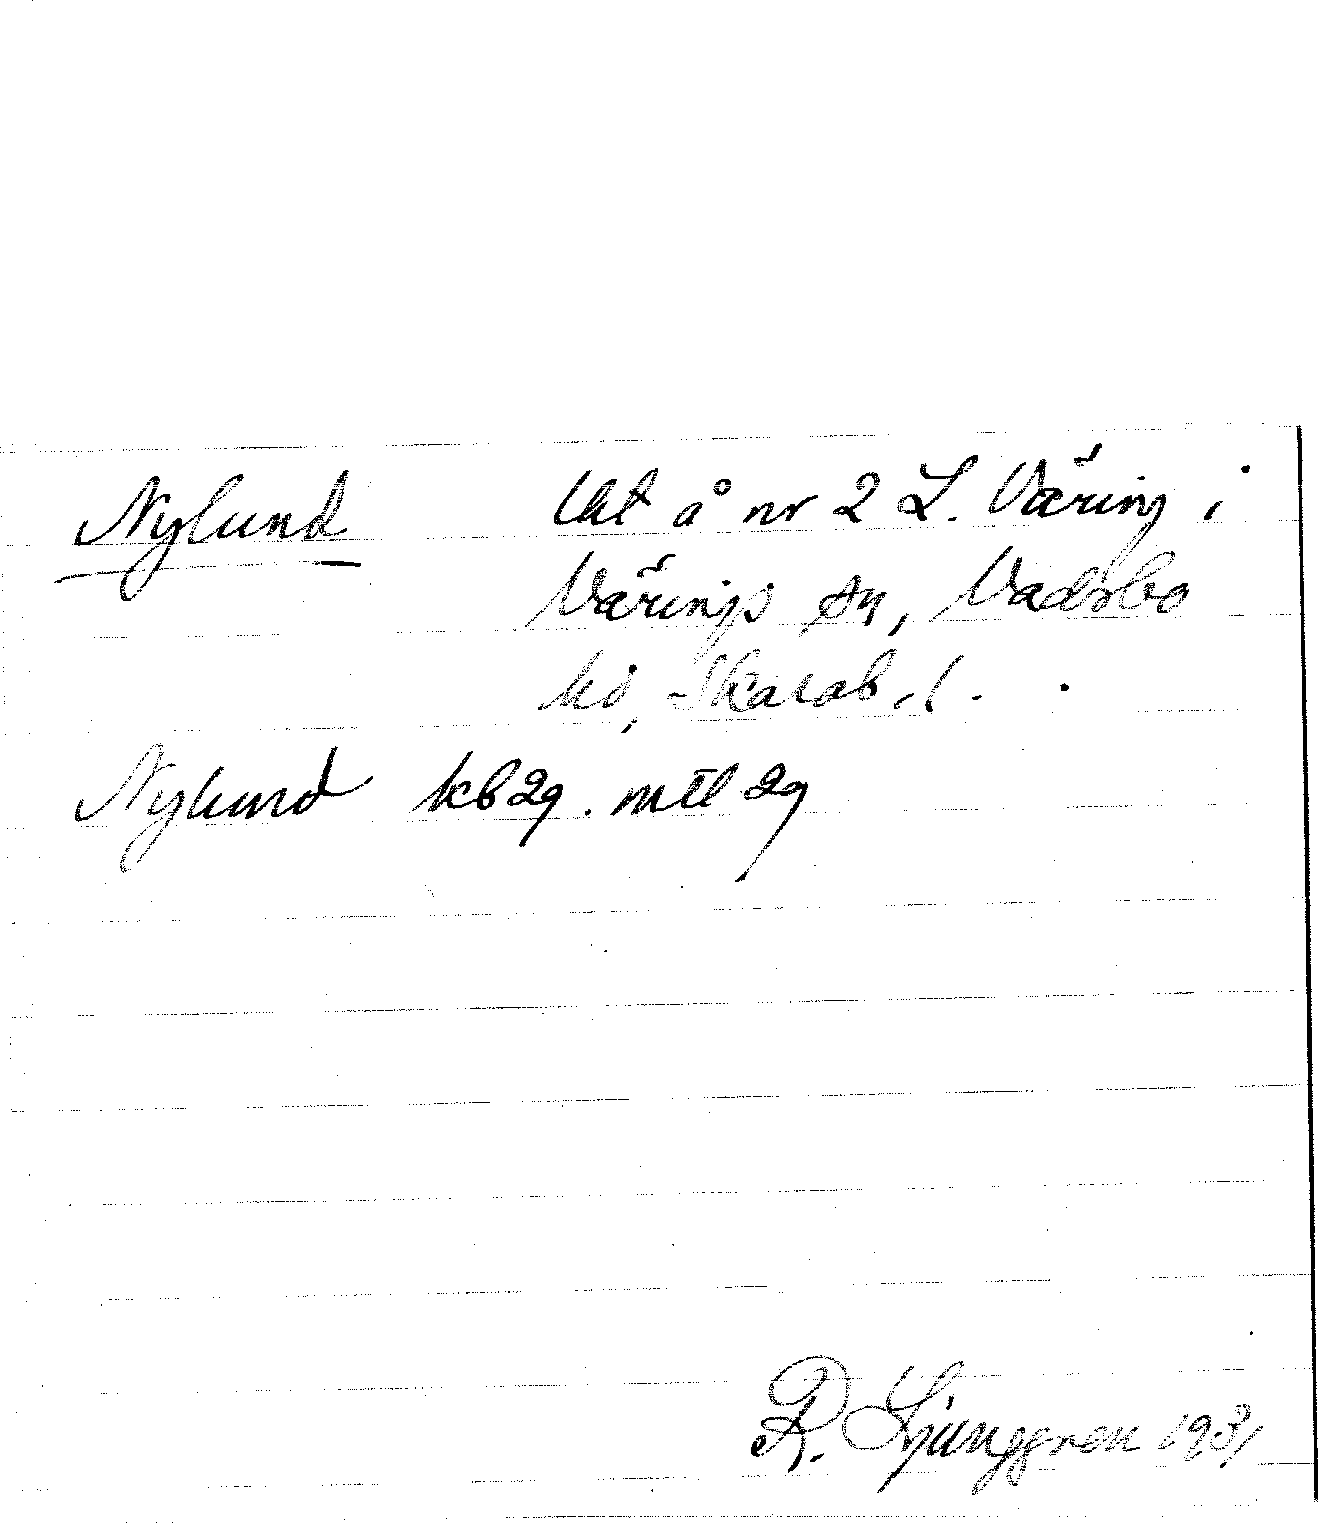 Nylund Vht å nr 2 L. Väring i
Värings sn, Vadsbo
hd, Skarab. l.
Nylund kb 29. mtl 29
R. Ljunggren 1931